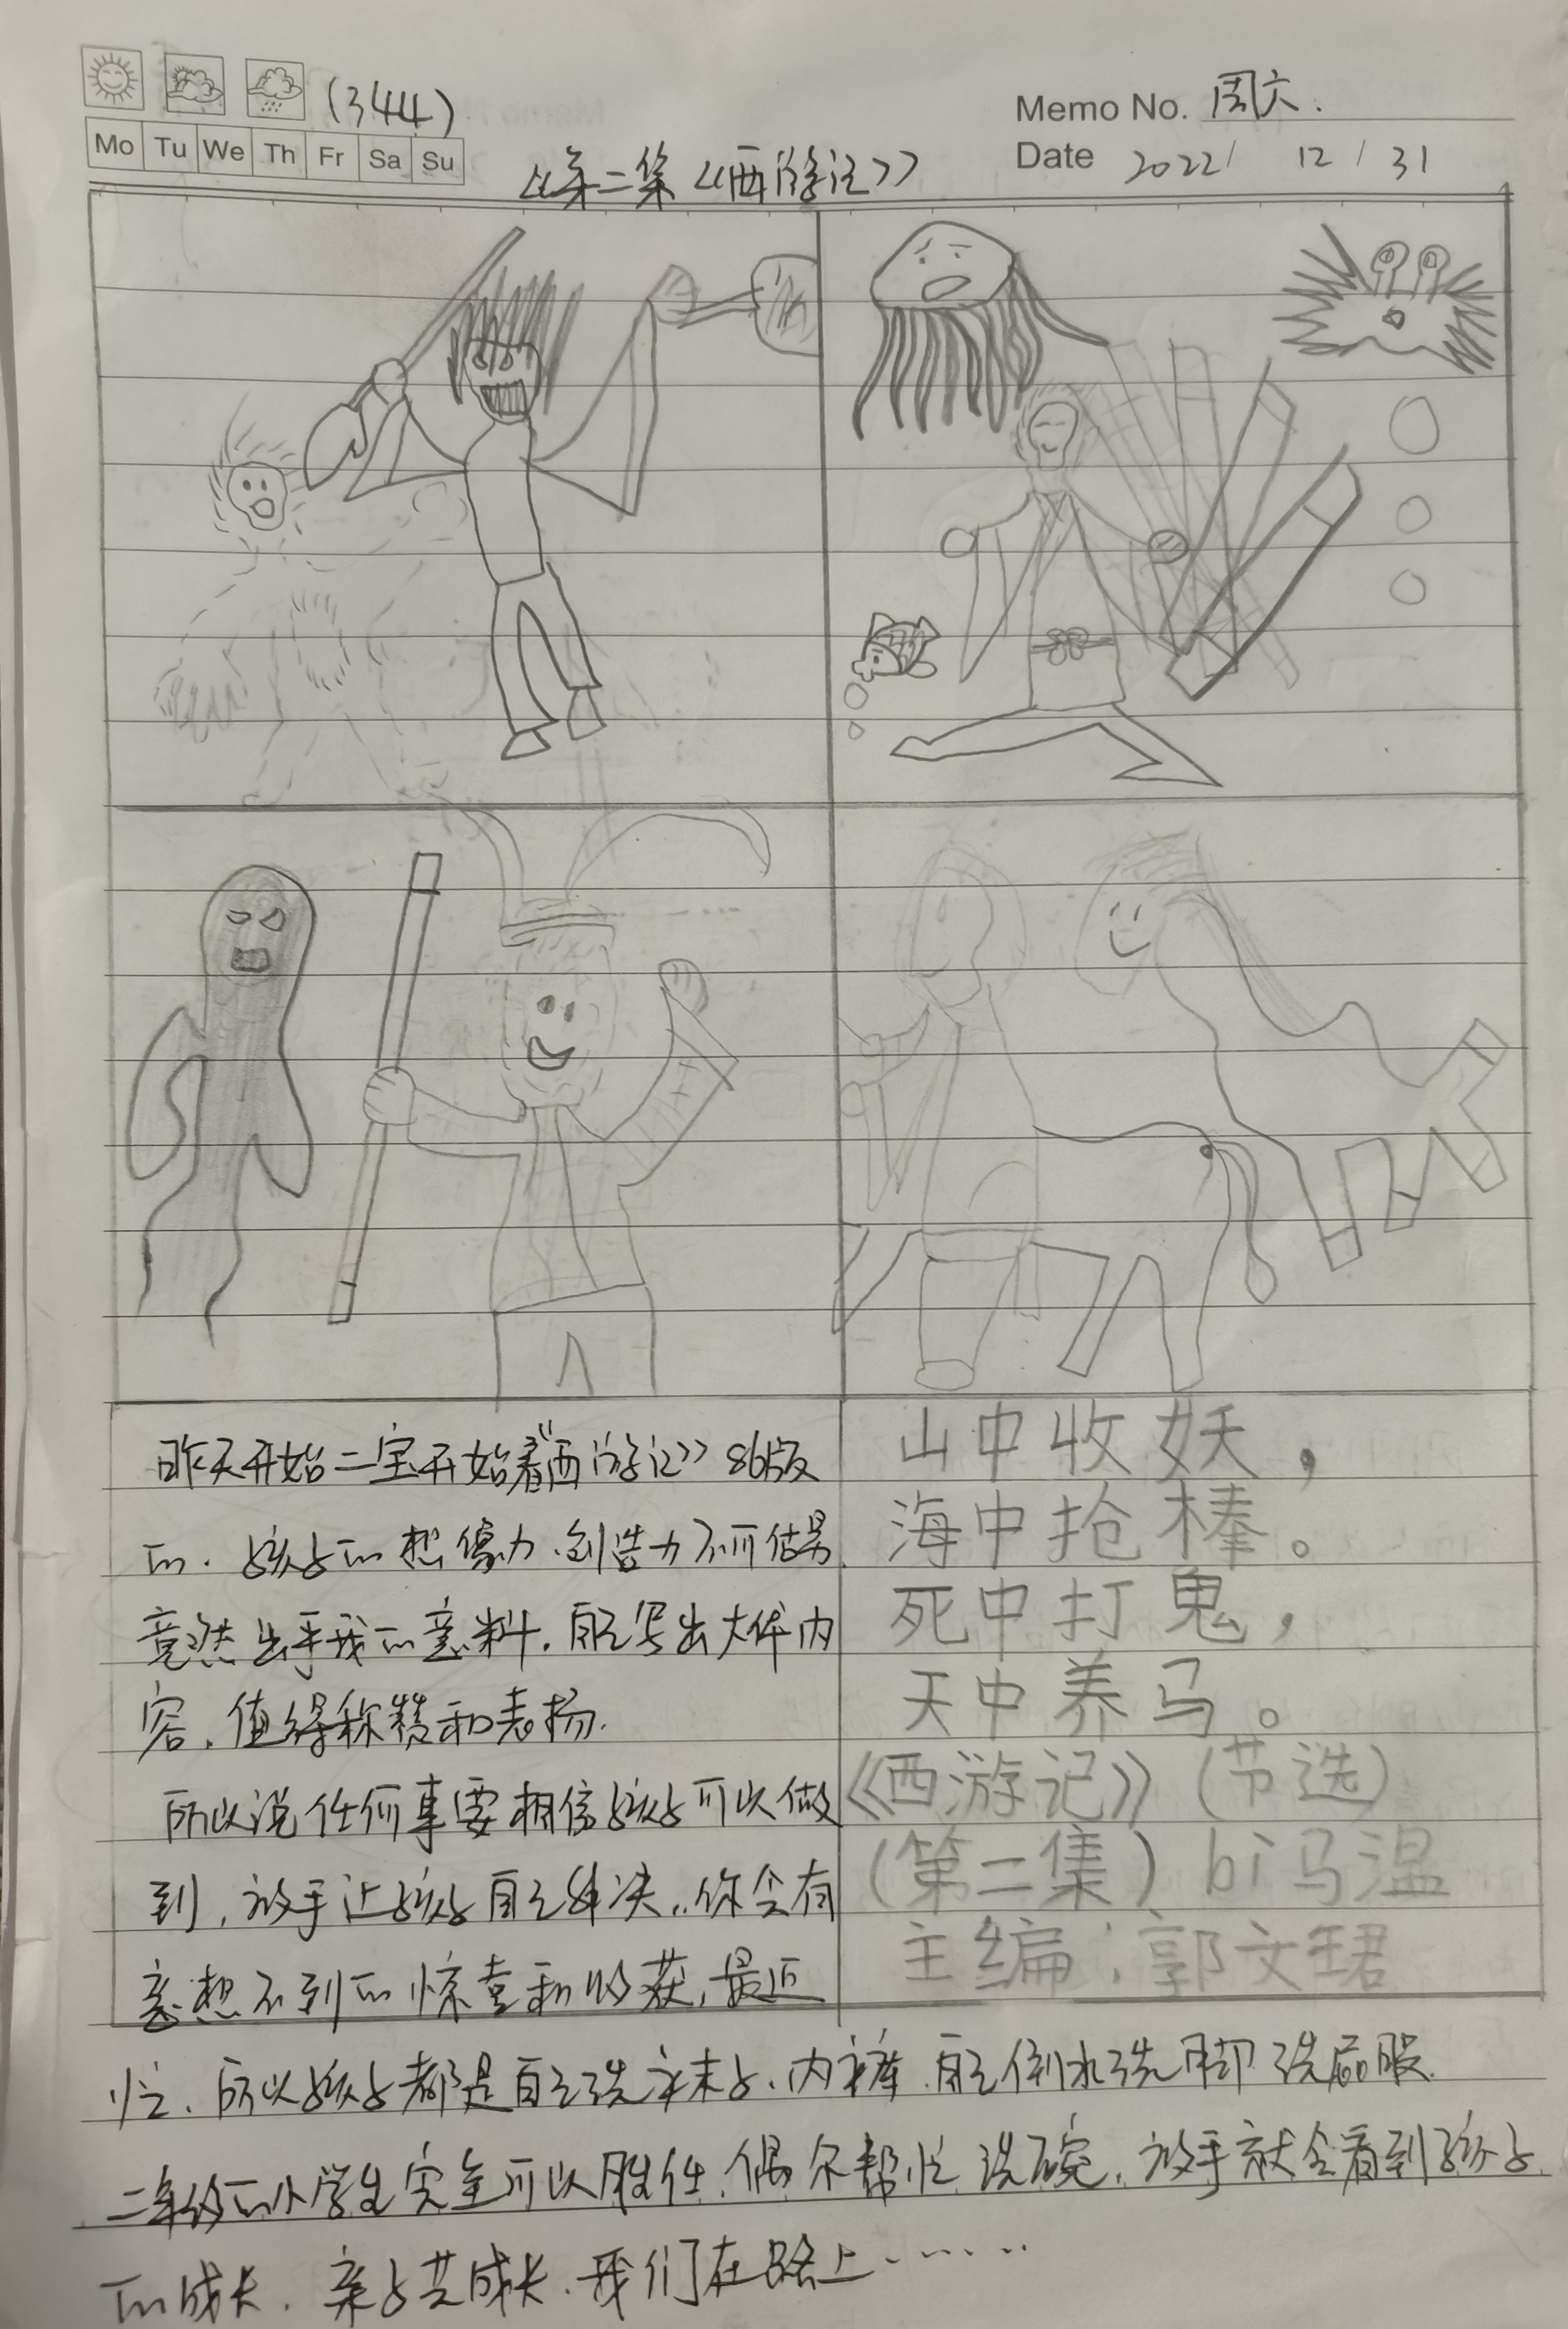 (344)
Memo No. 周六.
Mo Tu We Th Fr Sa Su
Date 2022/ 12 / 31
《第二集《西游记》
昨天开始二宝开始看《西游记》86版
的.孩子的想像力.创造力不可估量.
竟然出乎我的意料.自己写出大体内
容.值得称赞和表扬.
所以说任何事要相信孩子可以做
到,放手让孩子自己解决..你会有
意想不到的惊喜和收获,最近
忙.所以孩子都是自己洗袜子.内裤.自己倒水洗脚洗屁股.
二年级的小学生完全可以胜任.偶尔帮忙洗碗.放手就会看到孩子
的成长.亲子共成长.我们在路上......
山中收妖,
海中抢棒。
死中打鬼,
天中养马。
《西游记》(节选)
(第二集) bì马温
主编:郭文珺